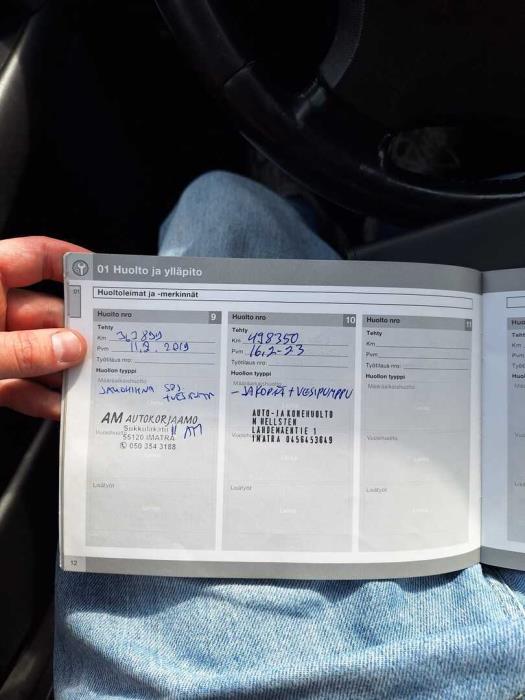 01 Huolto ja ylläpito
01
Huoltoleimat ja -merkinnät
Huolto nro 9
Tehty
Km
Pvm 11.2. 2019
Työtilaus nro:
Huollon tyyppi
Määräaikaishuolto
JAKOHIHNA
AM AUTOKORJAAMO
Sukkulakatu 11 AM
Vuosihuolto
55120 IMATRA
050 354 3188
Lisätyöt
Leima
Huolto nro 10
Tehty
Km 498350
Pvm 16.2-23
Työtilaus nro:
Huollon tyyppi
Määräaikaishuolto
- JAKOPÄÄ + VESIPUMPPU
AUTO-JA KONEHUOLTO
M HELLSTEN
LAHDEMAENTIE 1
IMATRA 0456453849
Vuosihuolto
Leima
Lisätyöt
Leima
Huolto nro 11
Tehty
Km
Pvm
Työtilaus nro:
Huollon tyyppi
Määräaikaishuolto
Leima
Vuosihuolto
Leima
Lisätyöt
Leima
12